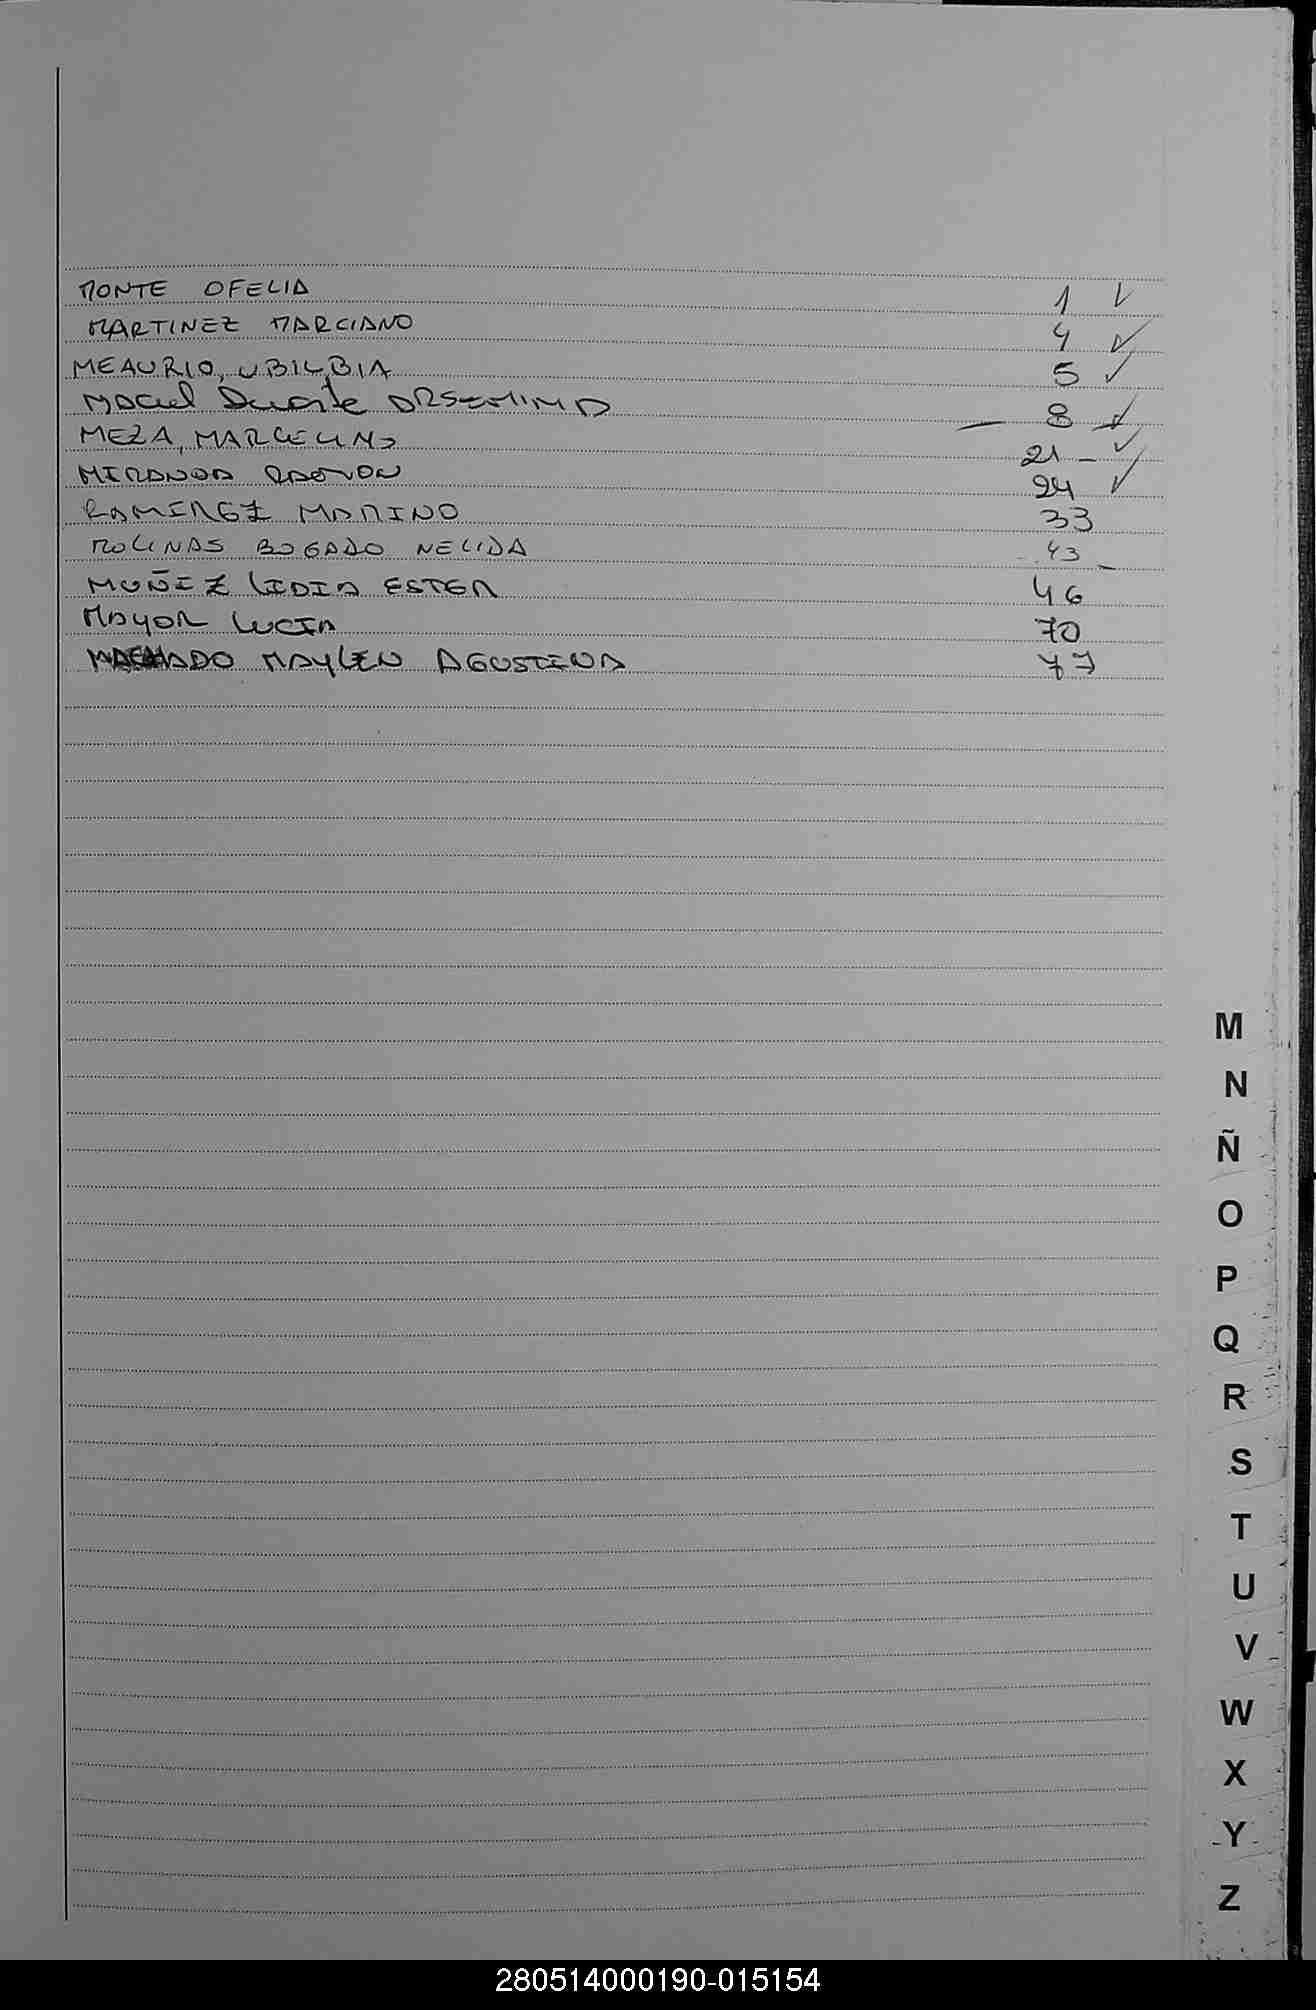 MONTE OFELIA 1 ✓
MARTINEZ MARCIANO 4 ✓
MEAURIO, UBILBIA 5 ✓
MACIEL Duarte ARSEMINA — 8 ✓
MEZA, MARCELINO 21 - ✓
MIRANDA RAMON 24 ✓
RAMIREZ MARINO 33
MOLINAS BOGADO NELIDA 43 -
MUÑIZ LIDIA ESTER 46
MAYOR LUCIA 70
MACHADO MAYLEN AGUSTINA 77
M
N
Ñ
O
P
Q
R
S
T
U
V
W
X
Y
Z
280514000190-015154